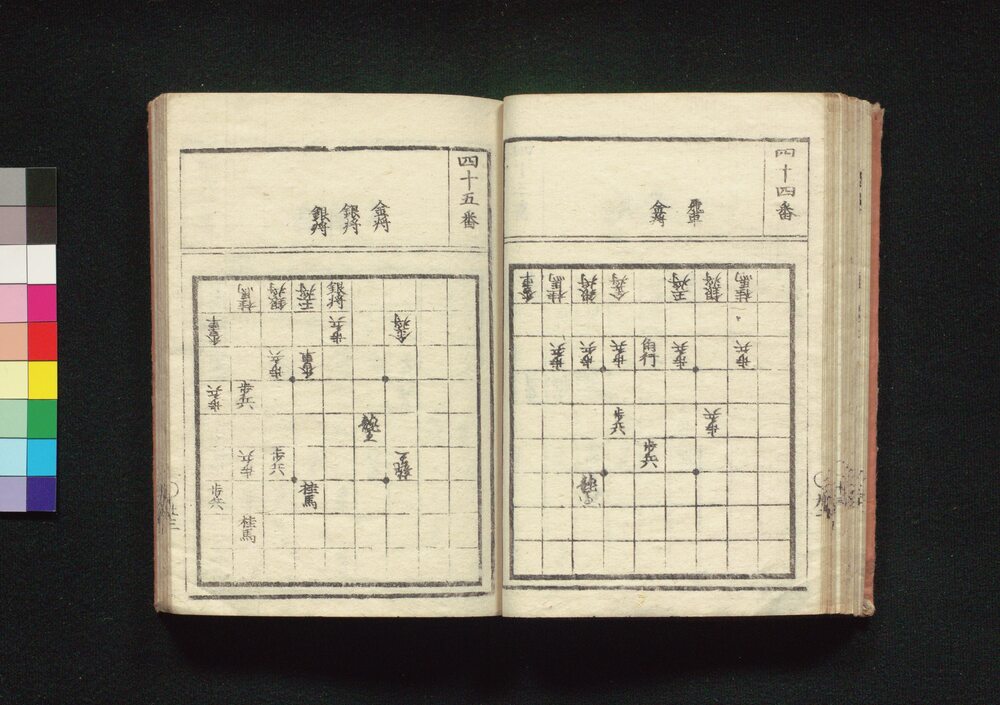 四十四番
飛車
金将
桂馬
銀将
王将
金将
銀将
桂馬
香車
歩兵
歩兵
角行
歩兵
歩兵
歩兵
歩兵
歩兵
歩兵
四十五番
金将
銀将
銀将
銀将
王将
銀将
桂馬
金将
歩兵
香車
歩兵
歩兵
歩兵
歩兵
歩兵
桂馬
歩兵
桂馬